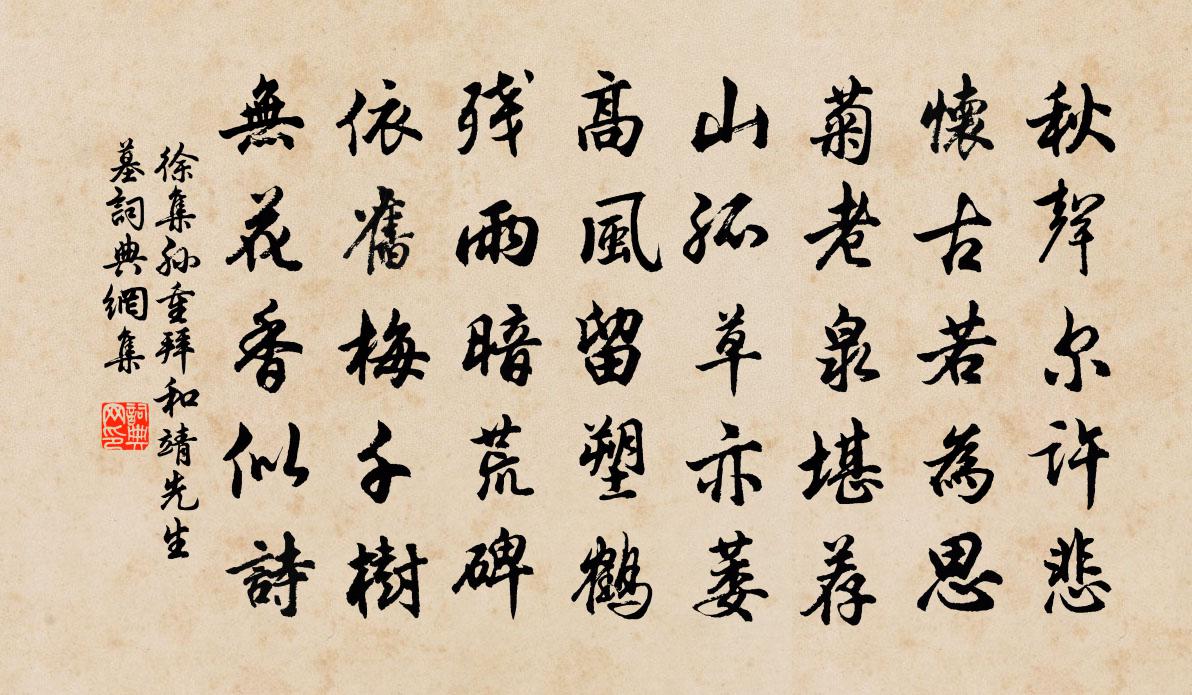 秋聲尔許悲
懷古若為思
菊老泉堪荐
山孤草亦萎
高風留塑鶴
残雨暗荒碑
依舊梅千樹
無花香似詩
徐集孙重拜和靖先生
墓詞典網集
詞典网印